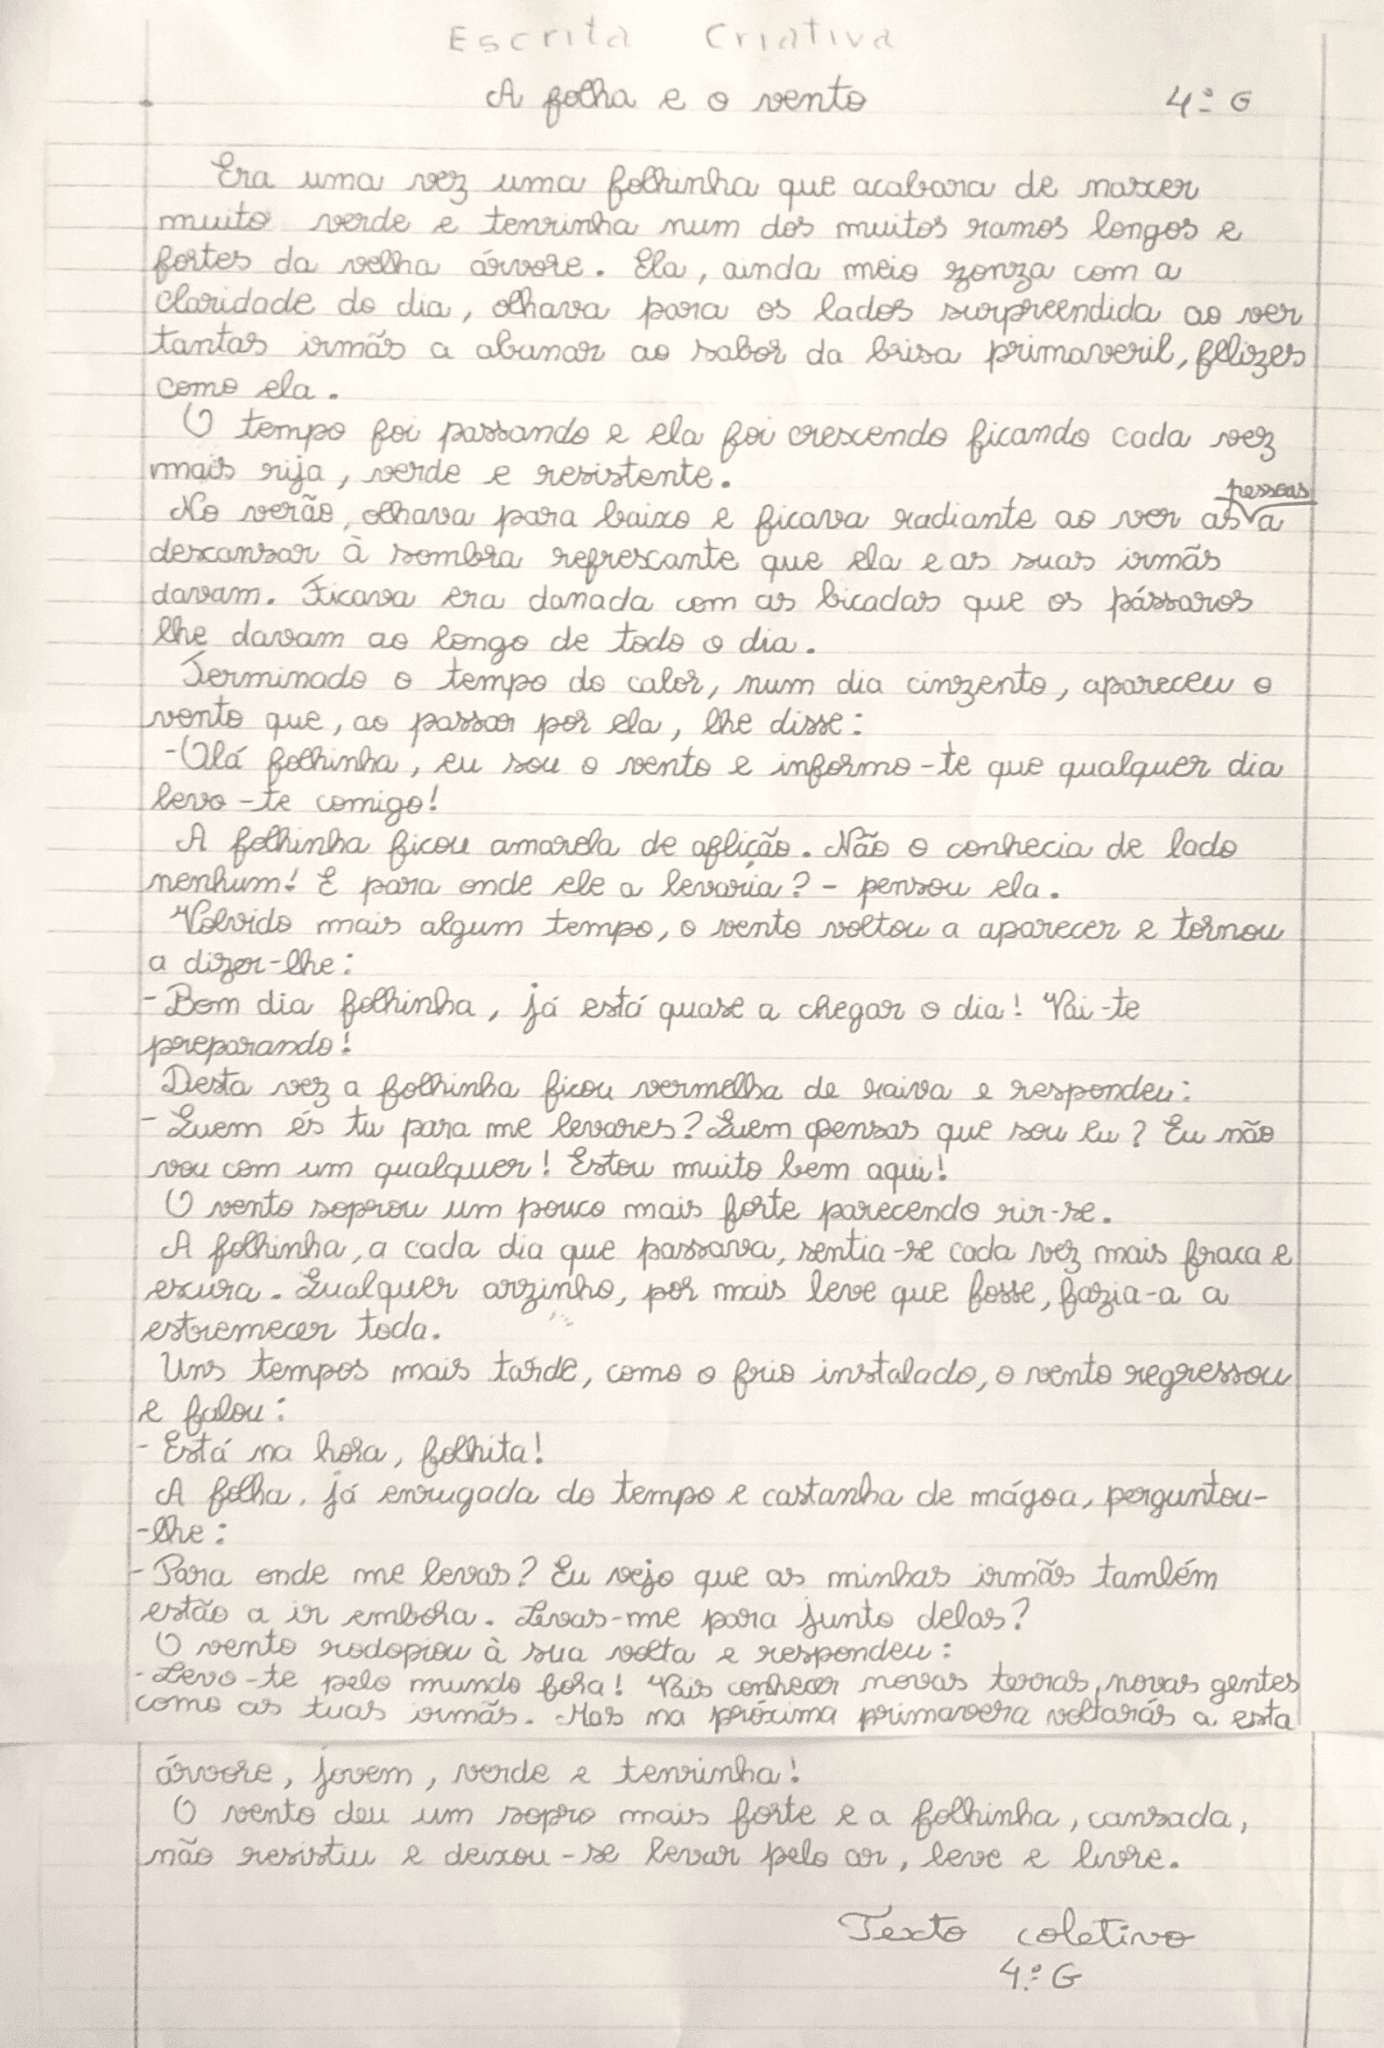 Escrita Criativa
A folha e o vento 4.º G
Era uma vez uma folhinha que acabara de nascer
muito verde e tenrinha num dos muitos ramos longos e
fortes da velha árvore. Ela, ainda meio zonza com a
claridade do dia, olhava para os lados surpreendida ao ver
tantas irmãs a abanar ao sabor da brisa primaveril, felizes
como ela.
O tempo foi passando e ela foi crescendo ficando cada vez
mais rija, verde e resistente.
No verão, olhava para baixo e ficava radiante ao ver as pessoas a
descansar à sombra refrescante que ela e as suas irmãs
davam. Ficava era danada com as bicadas que os pássaros
lhe davam ao longo de todo o dia.
Terminado o tempo do calor, num dia cinzento, apareceu o
vento que, ao passar por ela, lhe disse:
-Olá folhinha, eu sou o vento e informo-te que qualquer dia
levo-te comigo!
A folhinha ficou amarela de aflição. Não o conhecia de lado
nenhum! E para onde ele a levaria? - pensou ela.
Volvido mais algum tempo, o vento voltou a aparecer e tornou
a dizer-lhe:
- Bom dia folhinha, já está quase a chegar o dia! Vai-te
preparando!
Desta vez a folhinha ficou vermelha de raiva e respondeu:
- Quem és tu para me levares? Quem pensas que sou eu? Eu não
vou com um qualquer! Estou muito bem aqui!
O vento soprou um pouco mais forte parecendo rir-se.
A folhinha, a cada dia que passava, sentia-se cada vez mais fraca e
escura. Qualquer arzinho, por mais leve que fosse, fazia-a a
estremecer toda.
Uns tempos mais tarde, como o frio instalado, o vento regressou
e falou:
- Está na hora, folhita!
A folha, já enrugada do tempo e castanha de mágoa, perguntou-
-lhe:
- Para onde me levas? Eu vejo que as minhas irmãs também
estão a ir embora. Levas-me para junto delas?
O vento rodopiou à sua volta e respondeu:
- Levo-te pelo mundo fora! Vais conhecer novas terras, novas gentes
como as tuas irmãs. Mas na próxima primavera voltarás a esta
árvore, jovem, verde e tenrinha!
O vento deu um sopro mais forte e a folhinha, cansada,
não resistiu e deixou-se levar pelo ar, leve e livre.
Texto coletivo
4.º G